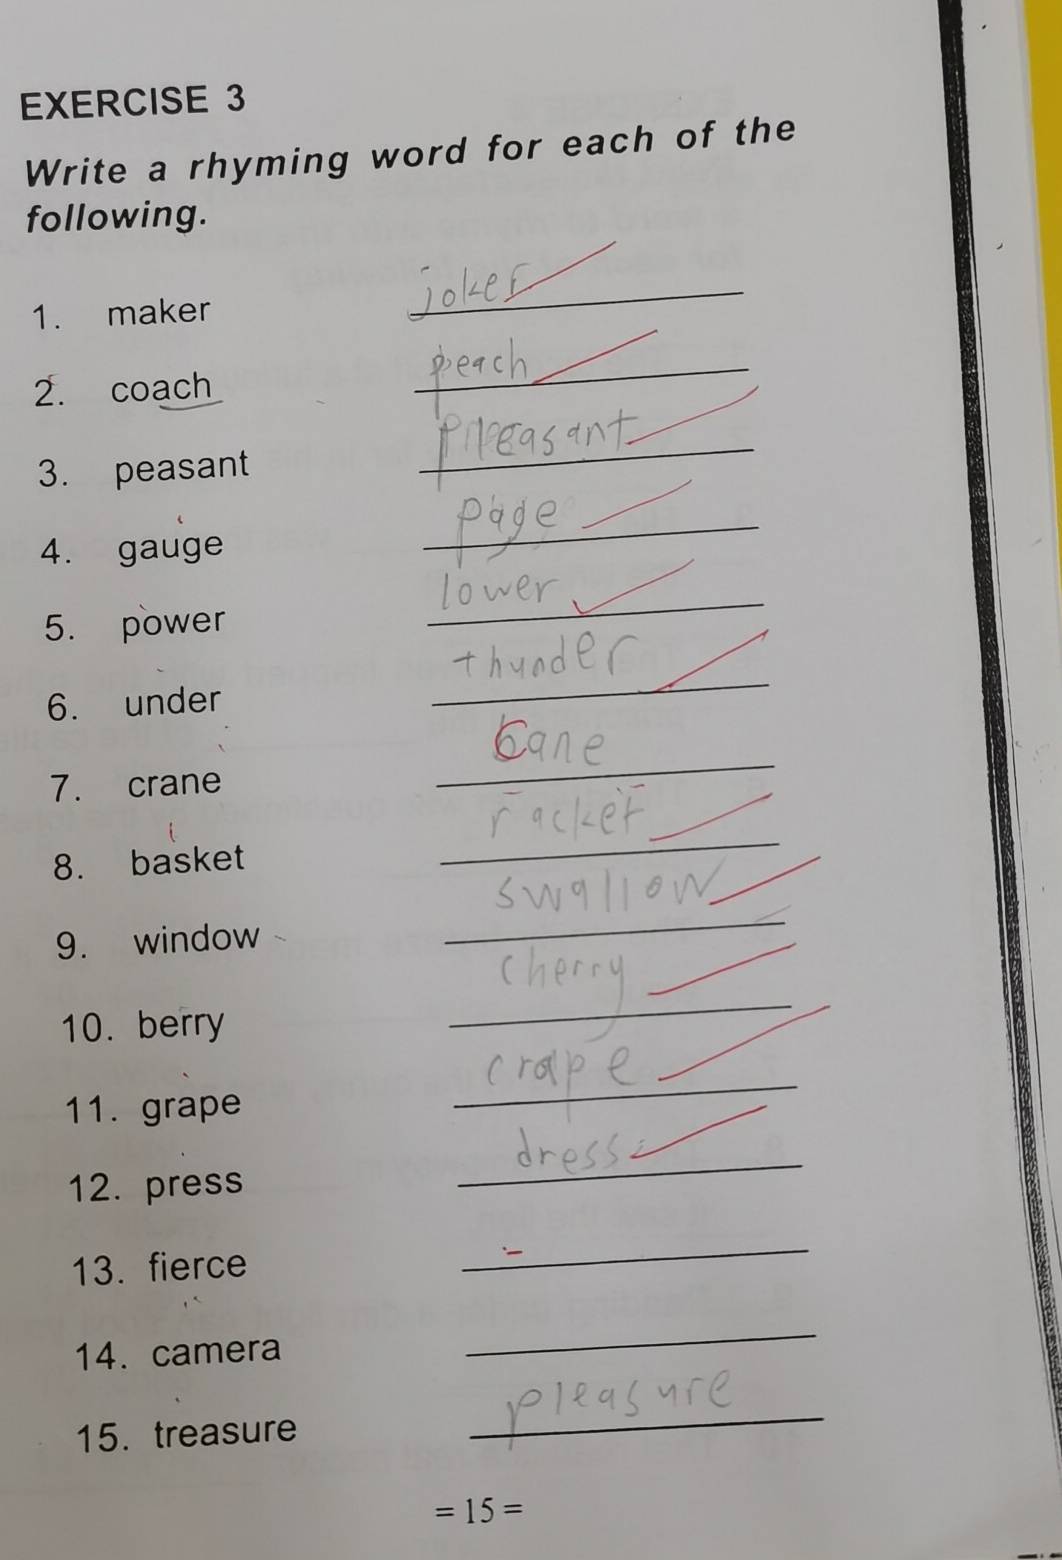 EXERCISE 3
Write a rhyming word for each of the
following.
1. maker joker
2. coach peach
3. peasant pleasant
4. gauge page
5. power lower
6. under thunder
7. crane cane
8. basket racket
9. window swallow
10. berry cherry
11. grape crape
12. press dress
13. fierce
14. camera
15. treasure pleasure
= 15 =